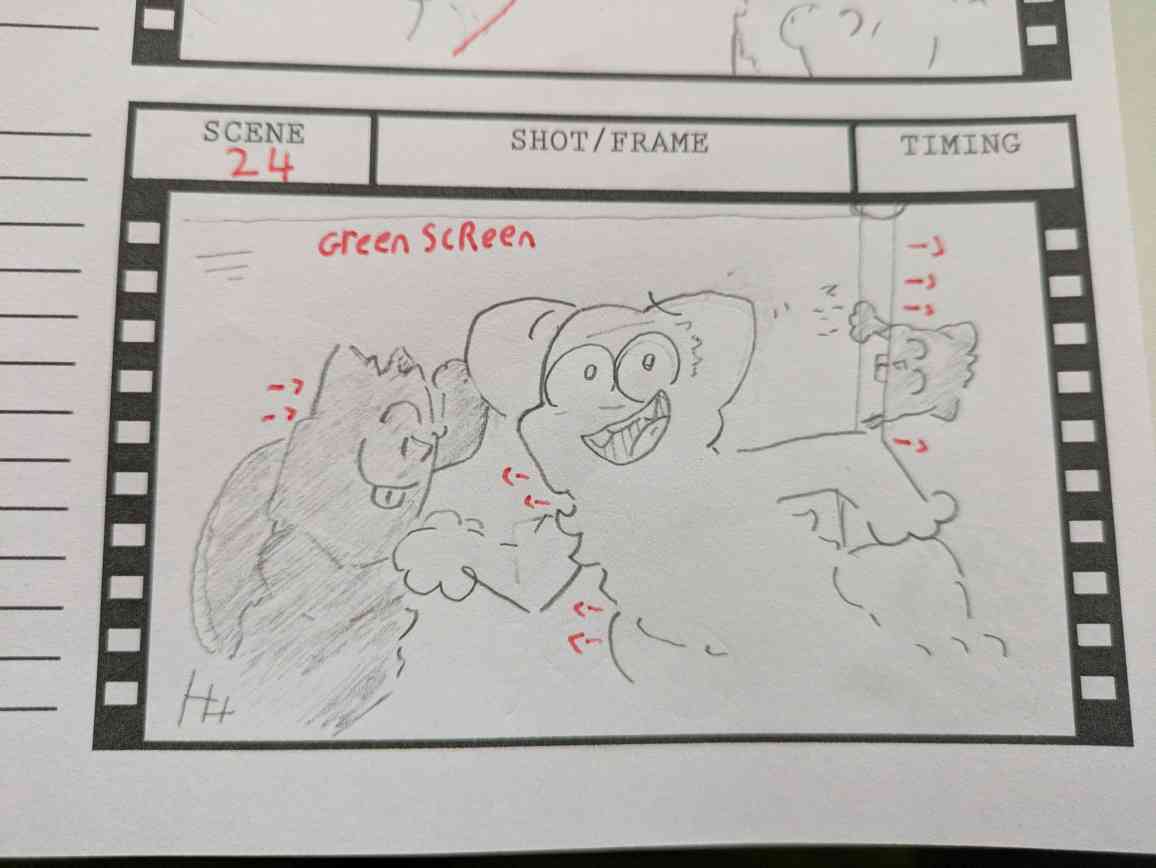 SCENE
24
SHOT/FRAME
TIMING
Green ScReen
HH